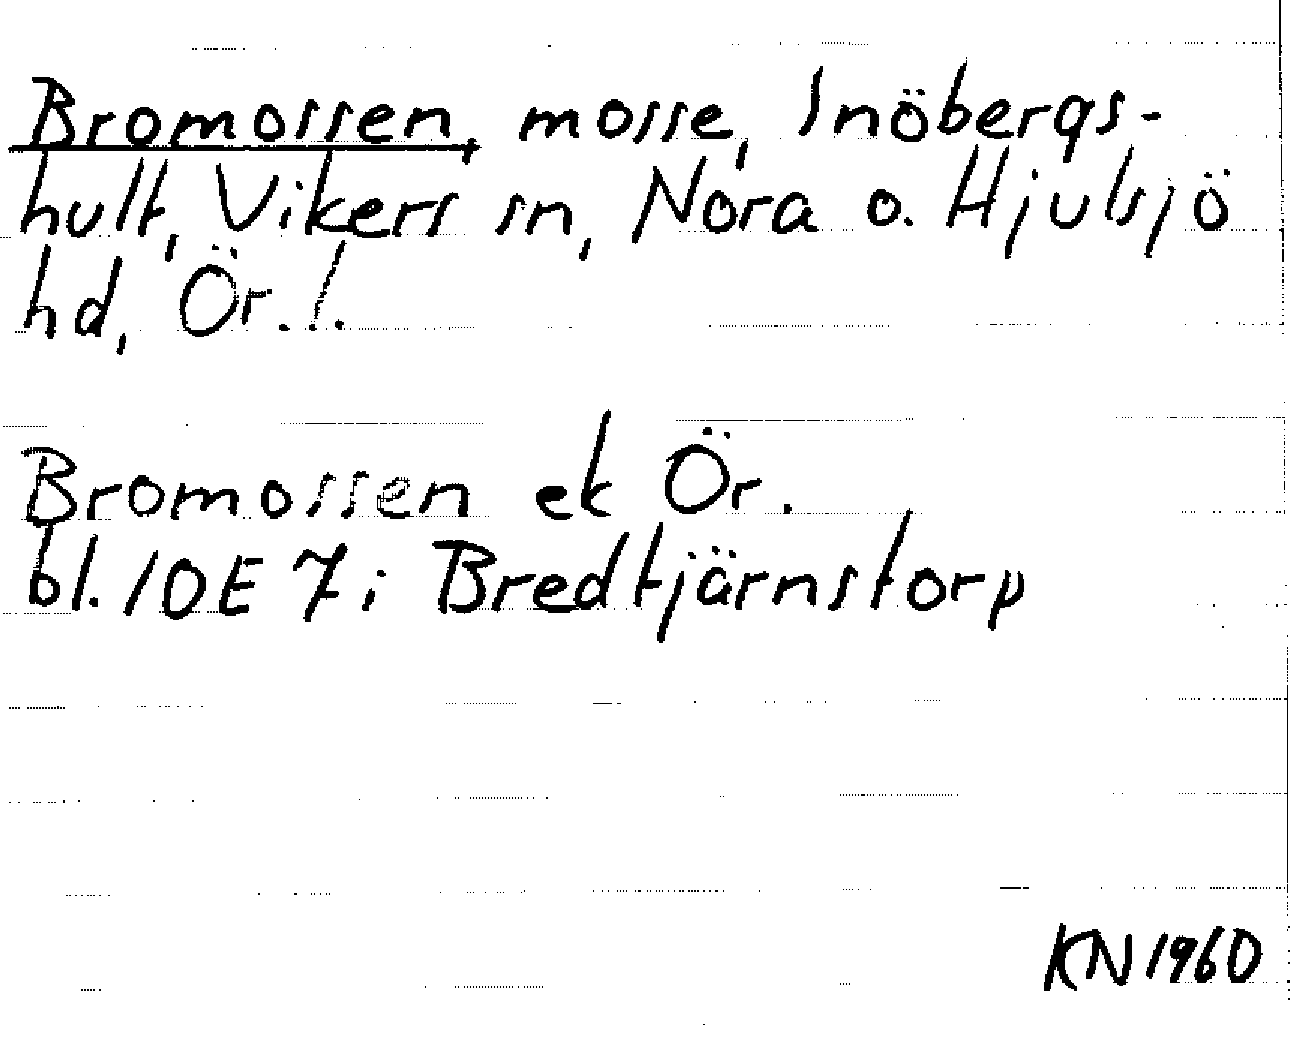 Bromossen, mosse, Snöbergs-
hult, Vikers sn, Nora o. Hjulsjö
hd, Ör. !.
Bromossen ek Ör.
bl. 10E 7i Bredtjärnstorp
KN 1960